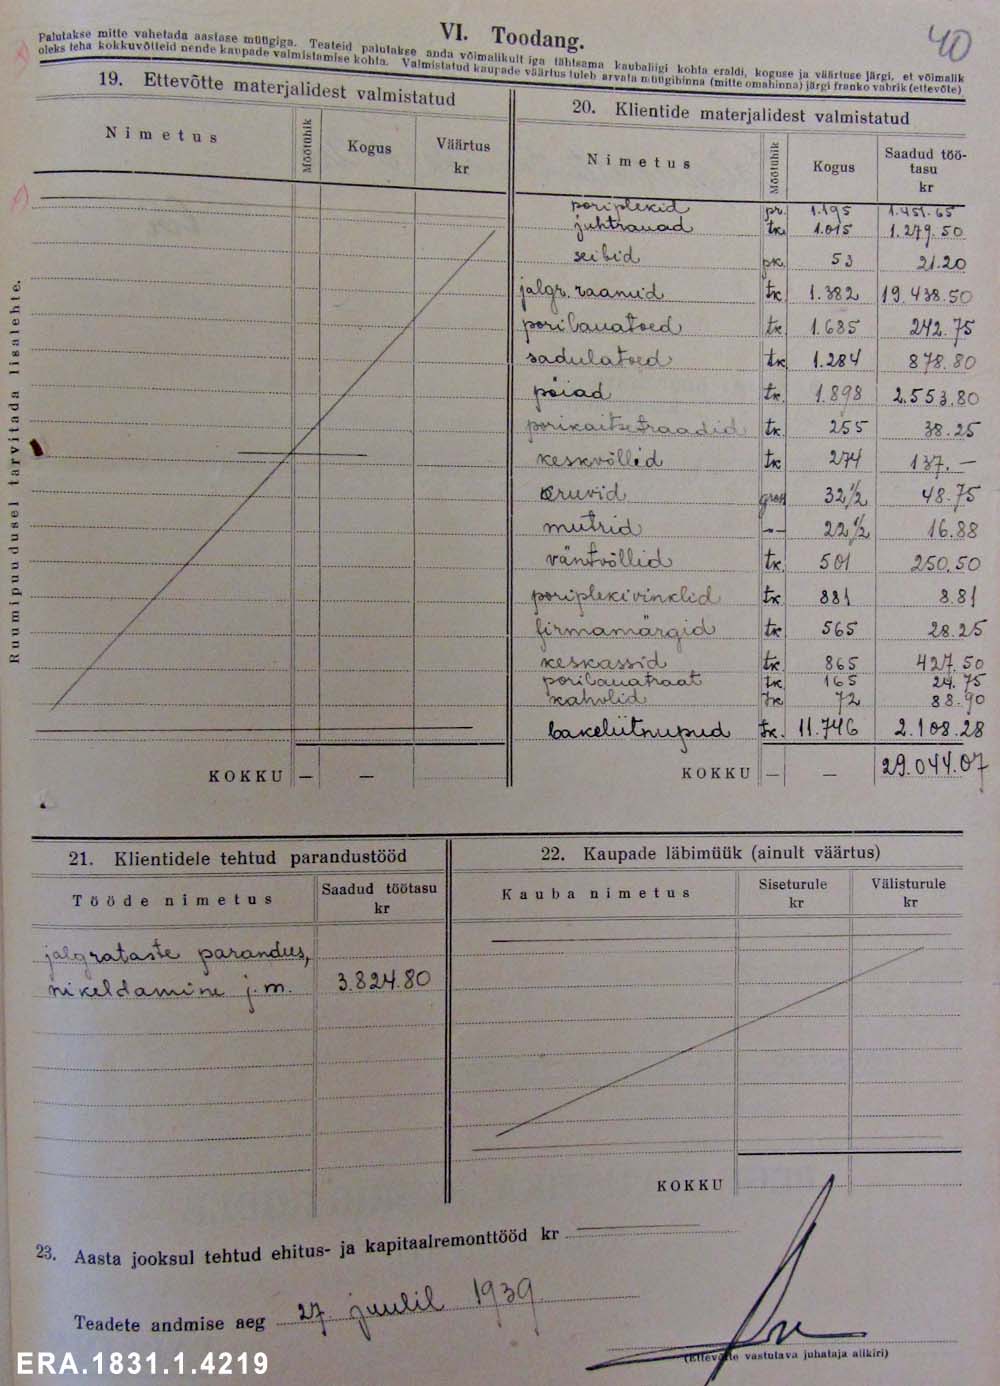 VI. Toodang.
40
Palutakse mitte vahetada aastase müügiga. Teateid palutakse anda võimalikult iga tähtsama kaubaliigi kohta eraldi, koguse ja väärtuse järgi, et võimalik
oleks teha kokkuvõtteid nende kaupade valmistamise kohta. Valmistatud kaupade väärtus tuleb arvata müügihinna (mitte omahinna) järgi franko vabrik (ettevõte)
19. Ettevõtte materjalidest valmistatud
Nimetus Mõõtühik Kogus Väärtus kr
KOKKU — —
20. Klientide materjalidest valmistatud
Nimetus Mõõtühik Kogus Saadud töö-
tasu
kr
poriplekid pr. 1.195 1.451.65
juhtrauad tk. 1.015 1.279.50
seibid pk. 53 21.20
jalgr. raamid tk. 1.382 19.438.50
porilauatoed tk 1.685 242.75
sadulatoed tk 1.284 878.80
põiad tk. 1.898 2.553.80
porikaitsetraadid tk. 255 38.25
keskvõllid tk 274 137.—
kruvid gross 32 1/2 48.75
mutrid -"- 22 1/2 16.88
väntvõllid tk. 501 250.50
poriplekivinklid tk 881 8.81
firmamärgid tk 565 28.25
keskassid tk. 865 427.50
porilauatraat tk 165 24.75
kahvlid tk 72 88.90
bakeliitnupud tk. 11.746 2.108.28
KOKKU — — 29.044.07
Ruumipuudusel tarvitada lisalehte.
21. Klientidele tehtud parandustööd
Tööde nimetus Saadud töötasu
kr
jalgrataste parandus,
nikeldamine j.m. 3.824.80
22. Kaupade läbimüük (ainult väärtus)
Kauba nimetus Siseturule kr Välisturule kr
KOKKU
23. Aasta jooksul tehtud ehitus- ja kapitaalremonttööd kr
Teadete andmise aeg 27 juulil 1939
(Ettevõtte vastutava juhataja allkiri)
ERA.1831.1.4219